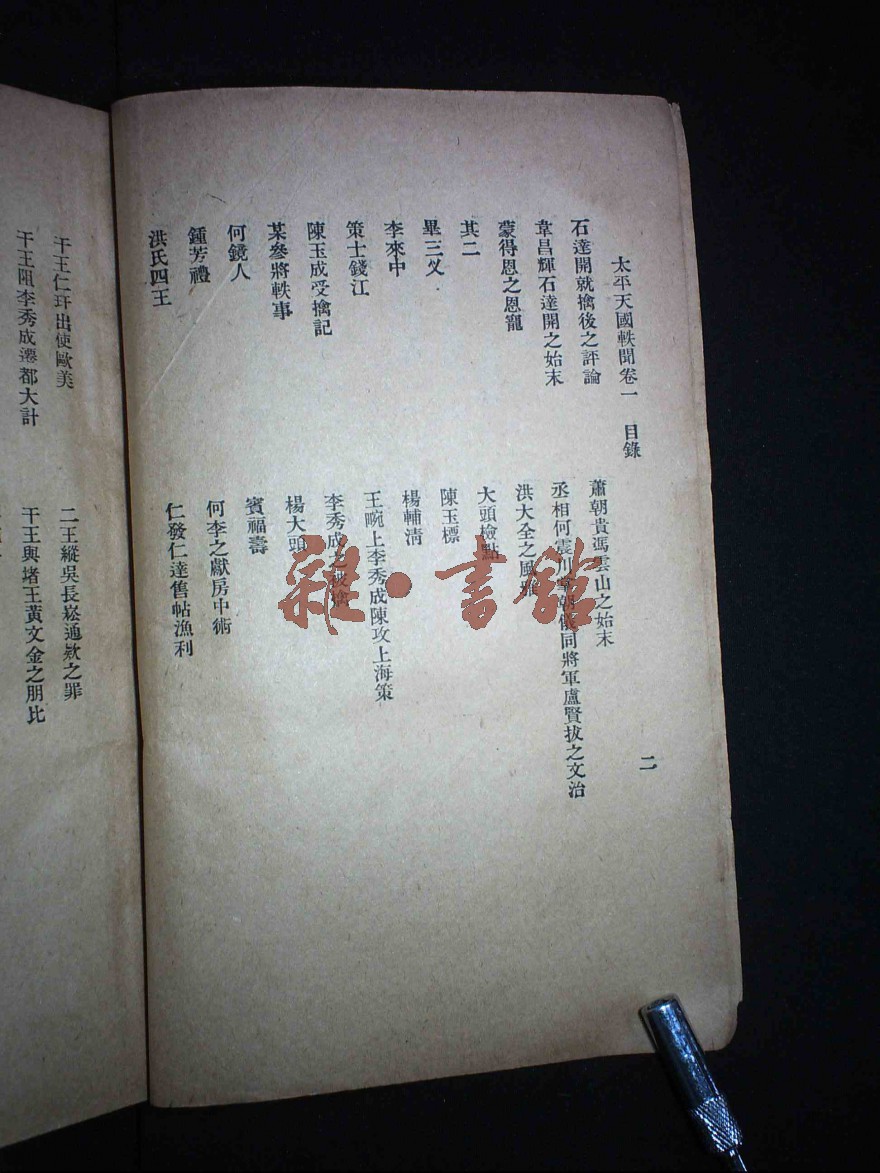 太平天國軼聞卷一 目錄 二
石達開就擒後之評論 蕭朝貴馮雲山之始末
韋昌輝石達開之始末 丞相何震川掌朝儀同將軍盧賢拔之文治
蒙得恩之恩寵 洪大全之風雅
其二 大頭檢點
畢三义 陳玉標
李來中 楊輔淸
策士錢江 王畹上李秀成陳攻上海策
陳玉成受擒記 李秀成之被擒
某參將軼事 楊大頭
何鏡人 賓福壽
鍾芳禮 何李之獻房中術
洪氏四王 仁發仁達售帖漁利
干王仁玕出使歐美 二王縱吳長崧通欵之罪
干王阻李秀成遷都大計 干王與堵王黃文金之朋比
雜·書館